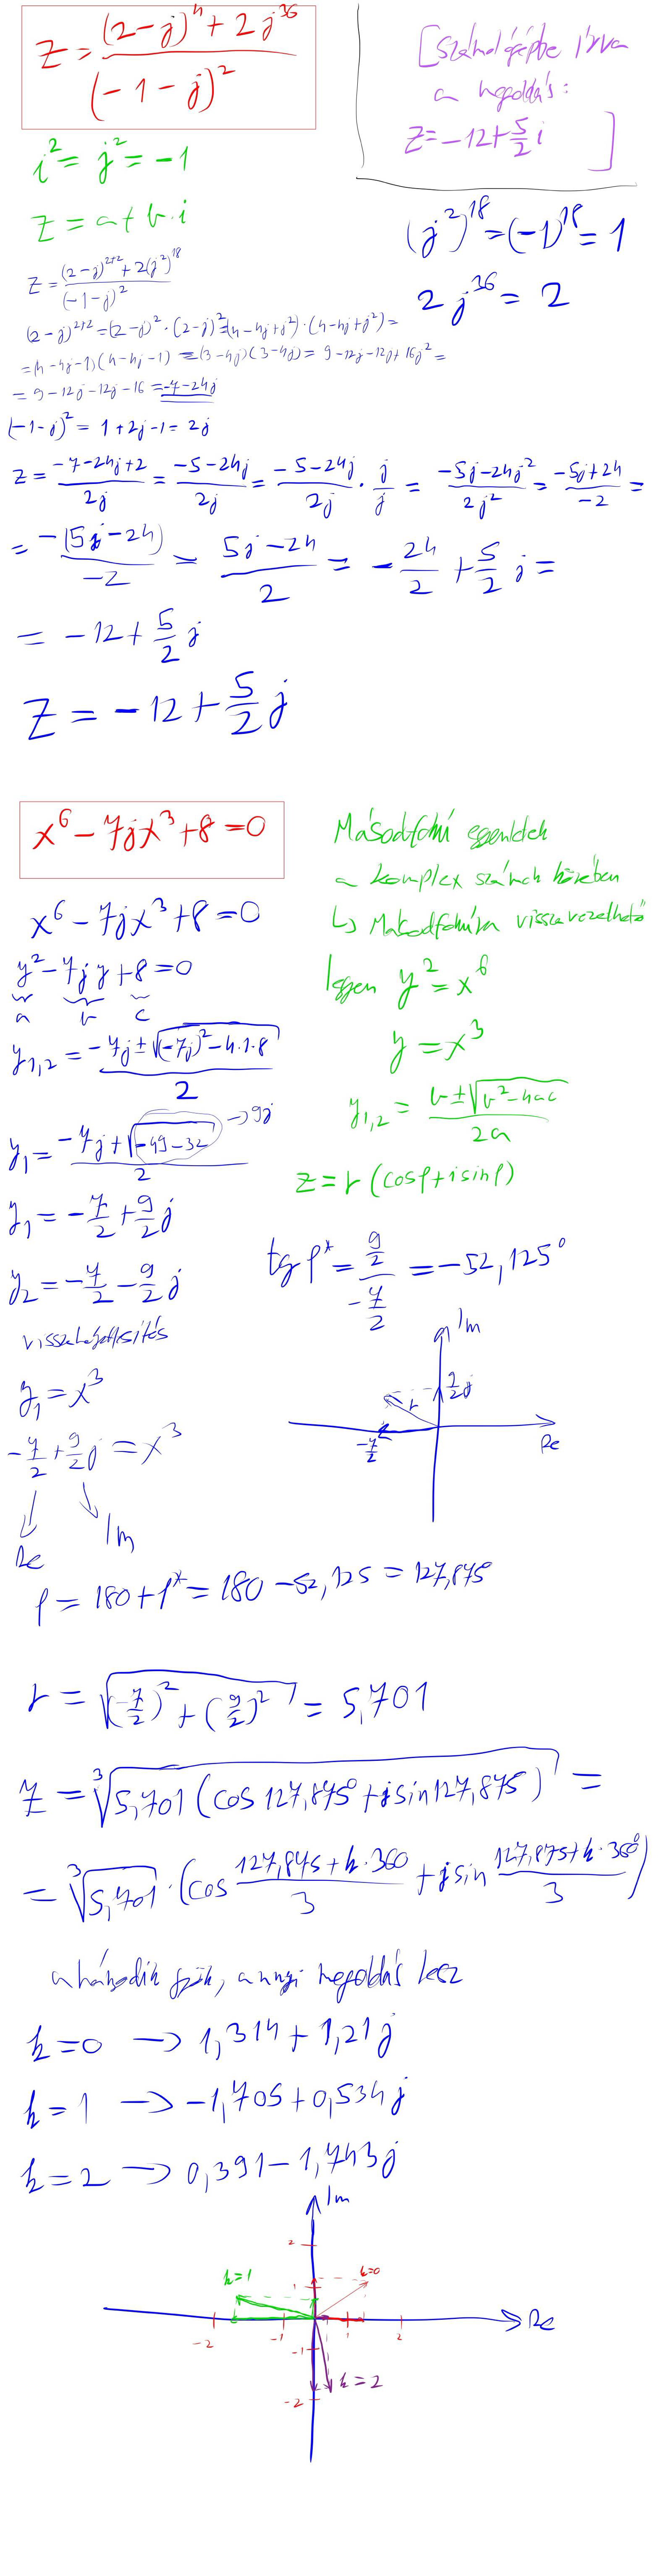 z = ((2-j)^4 + 2j^36) / (-1-j)^2
[számológépbe írva
a megoldás:
z = -12 + 5/2 i ]
i^2 = j^2 = -1
z = a + b·i
(j^2)^18 = (-1)^18 = 1
2j^36 = 2
z = ((2-j)^(2+2) + 2(j^2)^18) / (-1-j)^2
(2-j)^(2+2) = (2-j)^2 · (2-j)^2 = (4-4j+j^2)·(4-4j+j^2) =
= (4-4j-1)(4-4j-1) = (3-4j)(3-4j) = 9-12j-12j+16j^2 =
= 9-12j-12j-16 = -7-24j
(-1-j)^2 = 1+2j-1 = 2j
z = (-7-24j+2)/2j = (-5-24j)/2j = (-5-24j)/2j · j/j = (-5j-24j^2)/2j^2 = (-5j+24)/-2 =
= -(5j-24)/-2 = (5j-24)/2 = -24/2 + 5/2 j =
= -12 + 5/2 j
z = -12 + 5/2 j
x^6 - 7jx^3 + 8 = 0
Másodfokú egyenletek
a komplex számok körében
↳ Másodfokúra visszavezethető
x^6 - 7jx^3 + 8 = 0
y^2 - 7jy + 8 = 0
a b c
legyen y^2 = x^6
y = x^3
y1,2 = (-7j ± √((-7j)^2 - 4·1·8)) / 2
y1,2 = (b ± √(b^2-4ac)) / 2a
y1 = (-7j + √(-49-32)) / 2 → 9j
z = r (cosφ + i sinφ)
y1 = -7/2 + 9/2 j
y2 = -7/2 - 9/2 j
tg φ* = (9/2)/(-7/2) = -52,125°
visszahelyettesítés
y1 = x^3
-7/2 + 9/2 j = x^3
Re Im
Im
9/2 j
r
-7/2
Re
φ = 180 + φ* = 180 - 52,125 = 127,875°
r = √((-7/2)^2 + (9/2)^2) = 5,701
z = ∛(5,701 (cos 127,875° + j sin 127,875)) =
= ∛5,701 · (cos (127,875 + k·360)/3 + j sin (127,875 + k·360°)/3)
ahányadik gyök, annyi megoldás lesz
k = 0 → 1,314 + 1,21j
k = 1 → -1,705 + 0,534j
k = 2 → 0,391 - 1,743j
Im
2
k=1
k=0
1
Re
-2
-1
1
2
-1
k = 2
-2